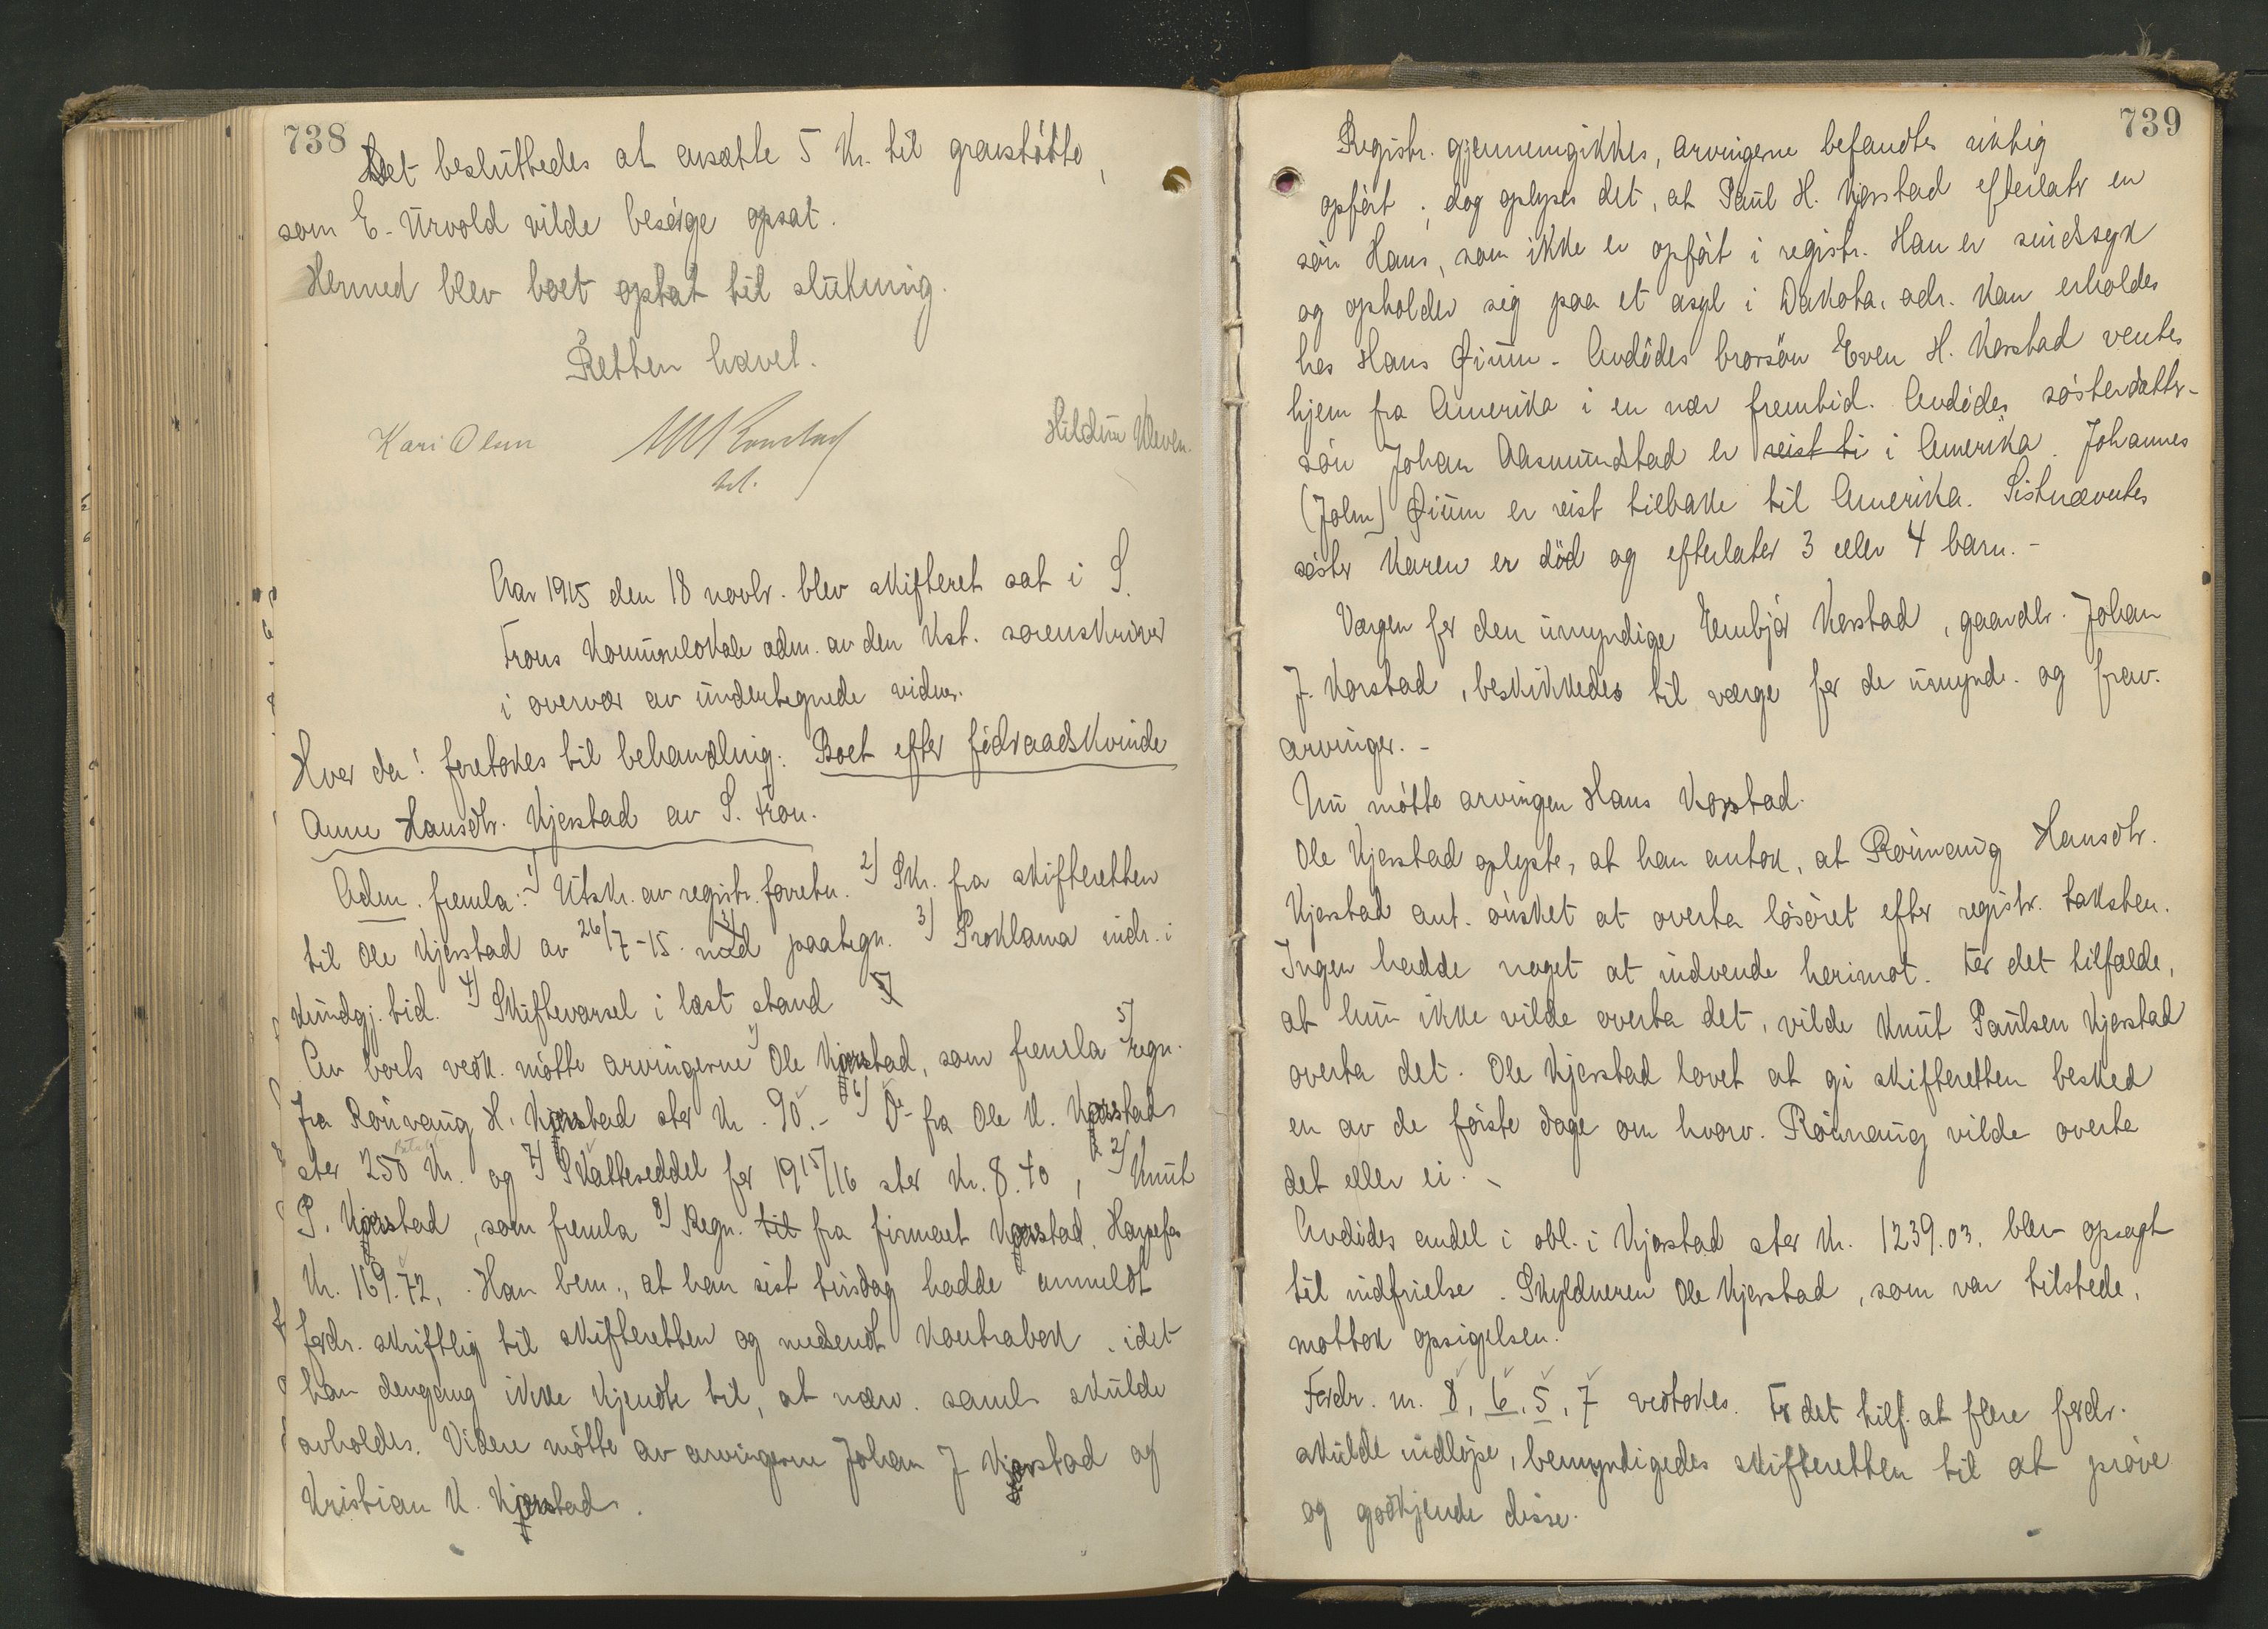 738
Det besluttedes at ansætte 5 Kr. til gravstøtte,
som E. Urvold vilde besørge opsat.
Hermed blev boet optat til slutning.
Retten hævet.
Kari Olsen
Aar 1915 den 18 novbr. blev skifteret sat i S.
Frons Kommunelokale adm. av den Kst. sorenskriver
i overvær av undertegnede vidner.
Hvor da: foretokes til behandling: Boet efter föderaadskvinde
Anne Hansdtr. Kjorstad av S. Fron.
Adm. fremla: 1) Utskr. av registr. forretn. 2) Skr. fra skifteretten
til Ole Kjorstad av 26/7-15 med paategn. 3) Proklama indr. i
Kundgj. tid. 4) Skiftevarsel i læst stand 5)
Av boets vedk. møtte arvingerne 1) Ole Kjorstad, som fremla 5) regn.
fra Rønnaug H. Kjorstad stor Kr. 90.- 6) Do fra Ole K. Kjorstad
stor 250 Kr. og 7) Skatteseddel for 1915/16 stor Kr. 8.40, 2) Knut
P. Kjorstad, som fremla 8) Regn. til fra firmaet Kjorstad, Harpefos
Kr. 169.72. Han bem., at han sist tirsdag hadde anmeldt
fordr. skriftlig til skifteretten og medsendt Kontrabok, idet
han dengang ikke kjendte til, at nærv. saml. skulde
avholdes. Videre møtte av arvingerne Johan J. Kjorstad og
Kristian K. Kjorstad.
739
Registr. gjennemgikkes, arvingerne befandtes riktig
opført; dog oplyses det, at Paul H. Kjorstad efterlater en
søn Hans, som ikke er opført i registr. Han er sindssyk
og opholder sig paa et asyl i Dakota, adr. kan erholdes
hos Hans Øium. Avdødes brorsøn Even H. Korstad ventes
hjem fra Amerika i en nær fremtid. Avdødes søsterdatter-
søn Johan Aasmundstad er reist ti i Amerika. Johannes
(John) Øium er reist tilbake til Amerika. Sistnævntes
søster Karen er död og efterlater 3 eller 4 barn.-
Vergen for den umyndige Embjør Korstad, gaardbr. Johan
J. Korstad, beskikkedes til værge for de umynd. og frav.
arvinger.-
Nu møtte arvingen Hans Korstad.
Ole Kjorstad oplyste, at han antok, at Rønnaug Hansdtr.
Kjorstad ant. ønsket at overta løsøret efter registr. taksten.
Ingen hadde noget at indvende herimot. For det tilfælde,
at hun ikke vilde overta det, vilde Knut Paulsen Kjorstad
overta det. Ole Kjorstad lovet at gi skifteretten besked
en av de første dage om hvorv. Rønnaug vilde overta
det eller ei.-
Avdødes andel i obl. i Kjorstad stor Kr. 1239.03. blev opsagt
til indfrielse. Skyldneren Ole Kjorstad, som var tilstede,
mottok opsigelsen.
Fordr. nr. 8, 6, 5, 7 vedtokes. For det tilf. at flere fordr.
skulde indløpe, bemyndigedes skifteretten til at prøve
og godkjende disse.